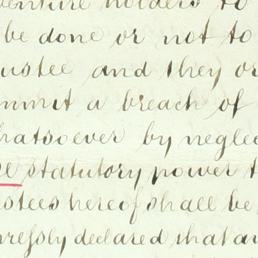 enture holders to
be done or not to
ustee and they or
mmit a breach of
hatsoever by neglec
se statutory power t
stees hereof shall be
pressly declared that an